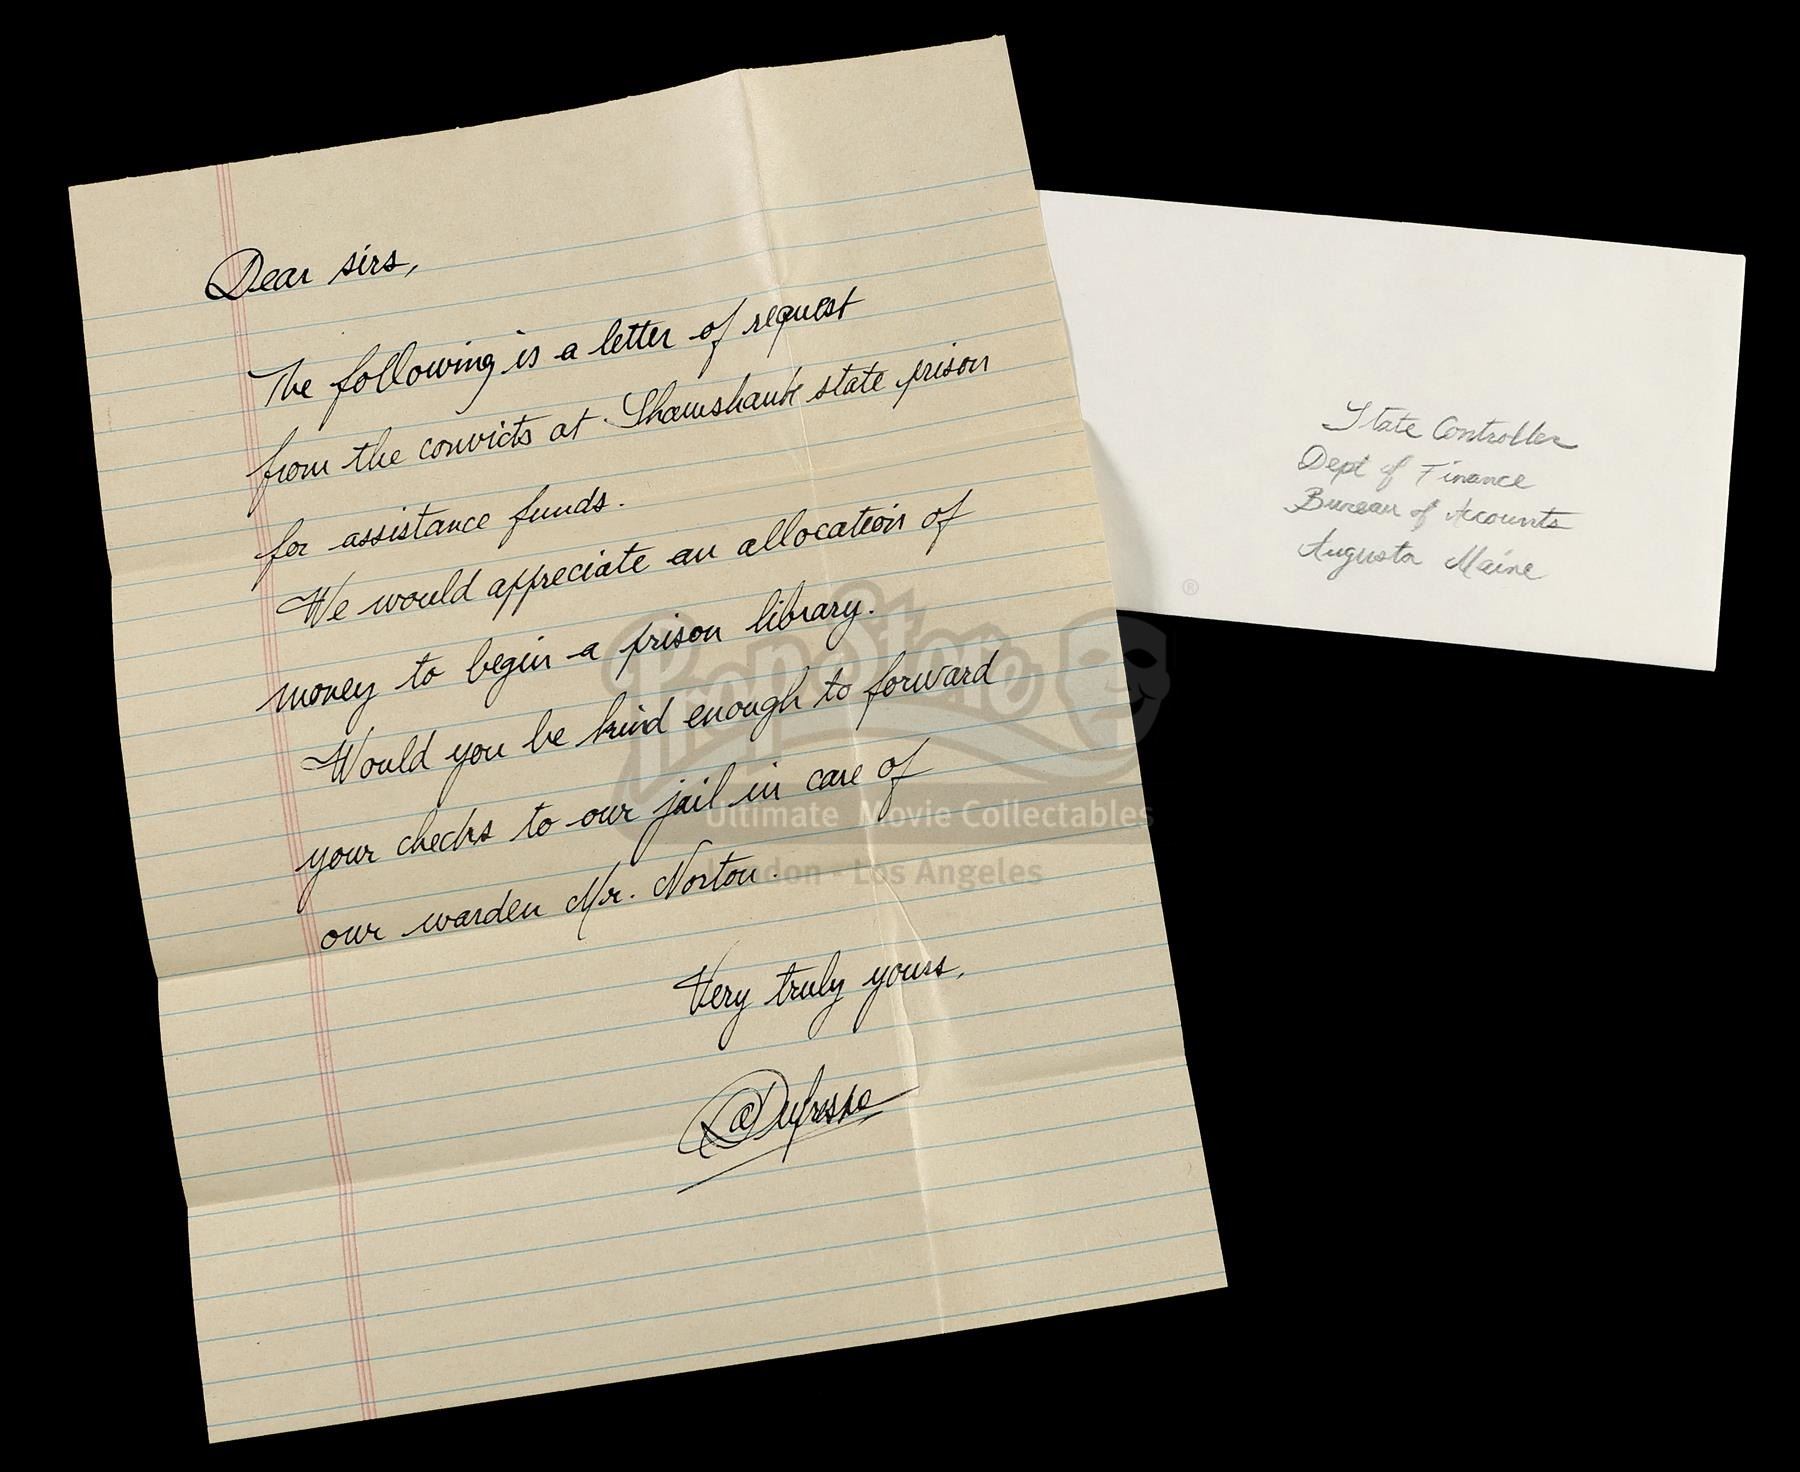 Dear sirs,
The following is a letter of request
from the convicts at Shawshank state prison
for assistance funds.
We would appreciate an allocation of
money to begin a prison library.
Would you be kind enough to forward
your checks to our jail in care of
our warden Mr. Norton.
Very truly yours,
Dufresne
State Controller
Dept of Finance
Bureau of Accounts
Augusta Maine
PropStore ®
Ultimate Movie Collectables
London - Los Angeles